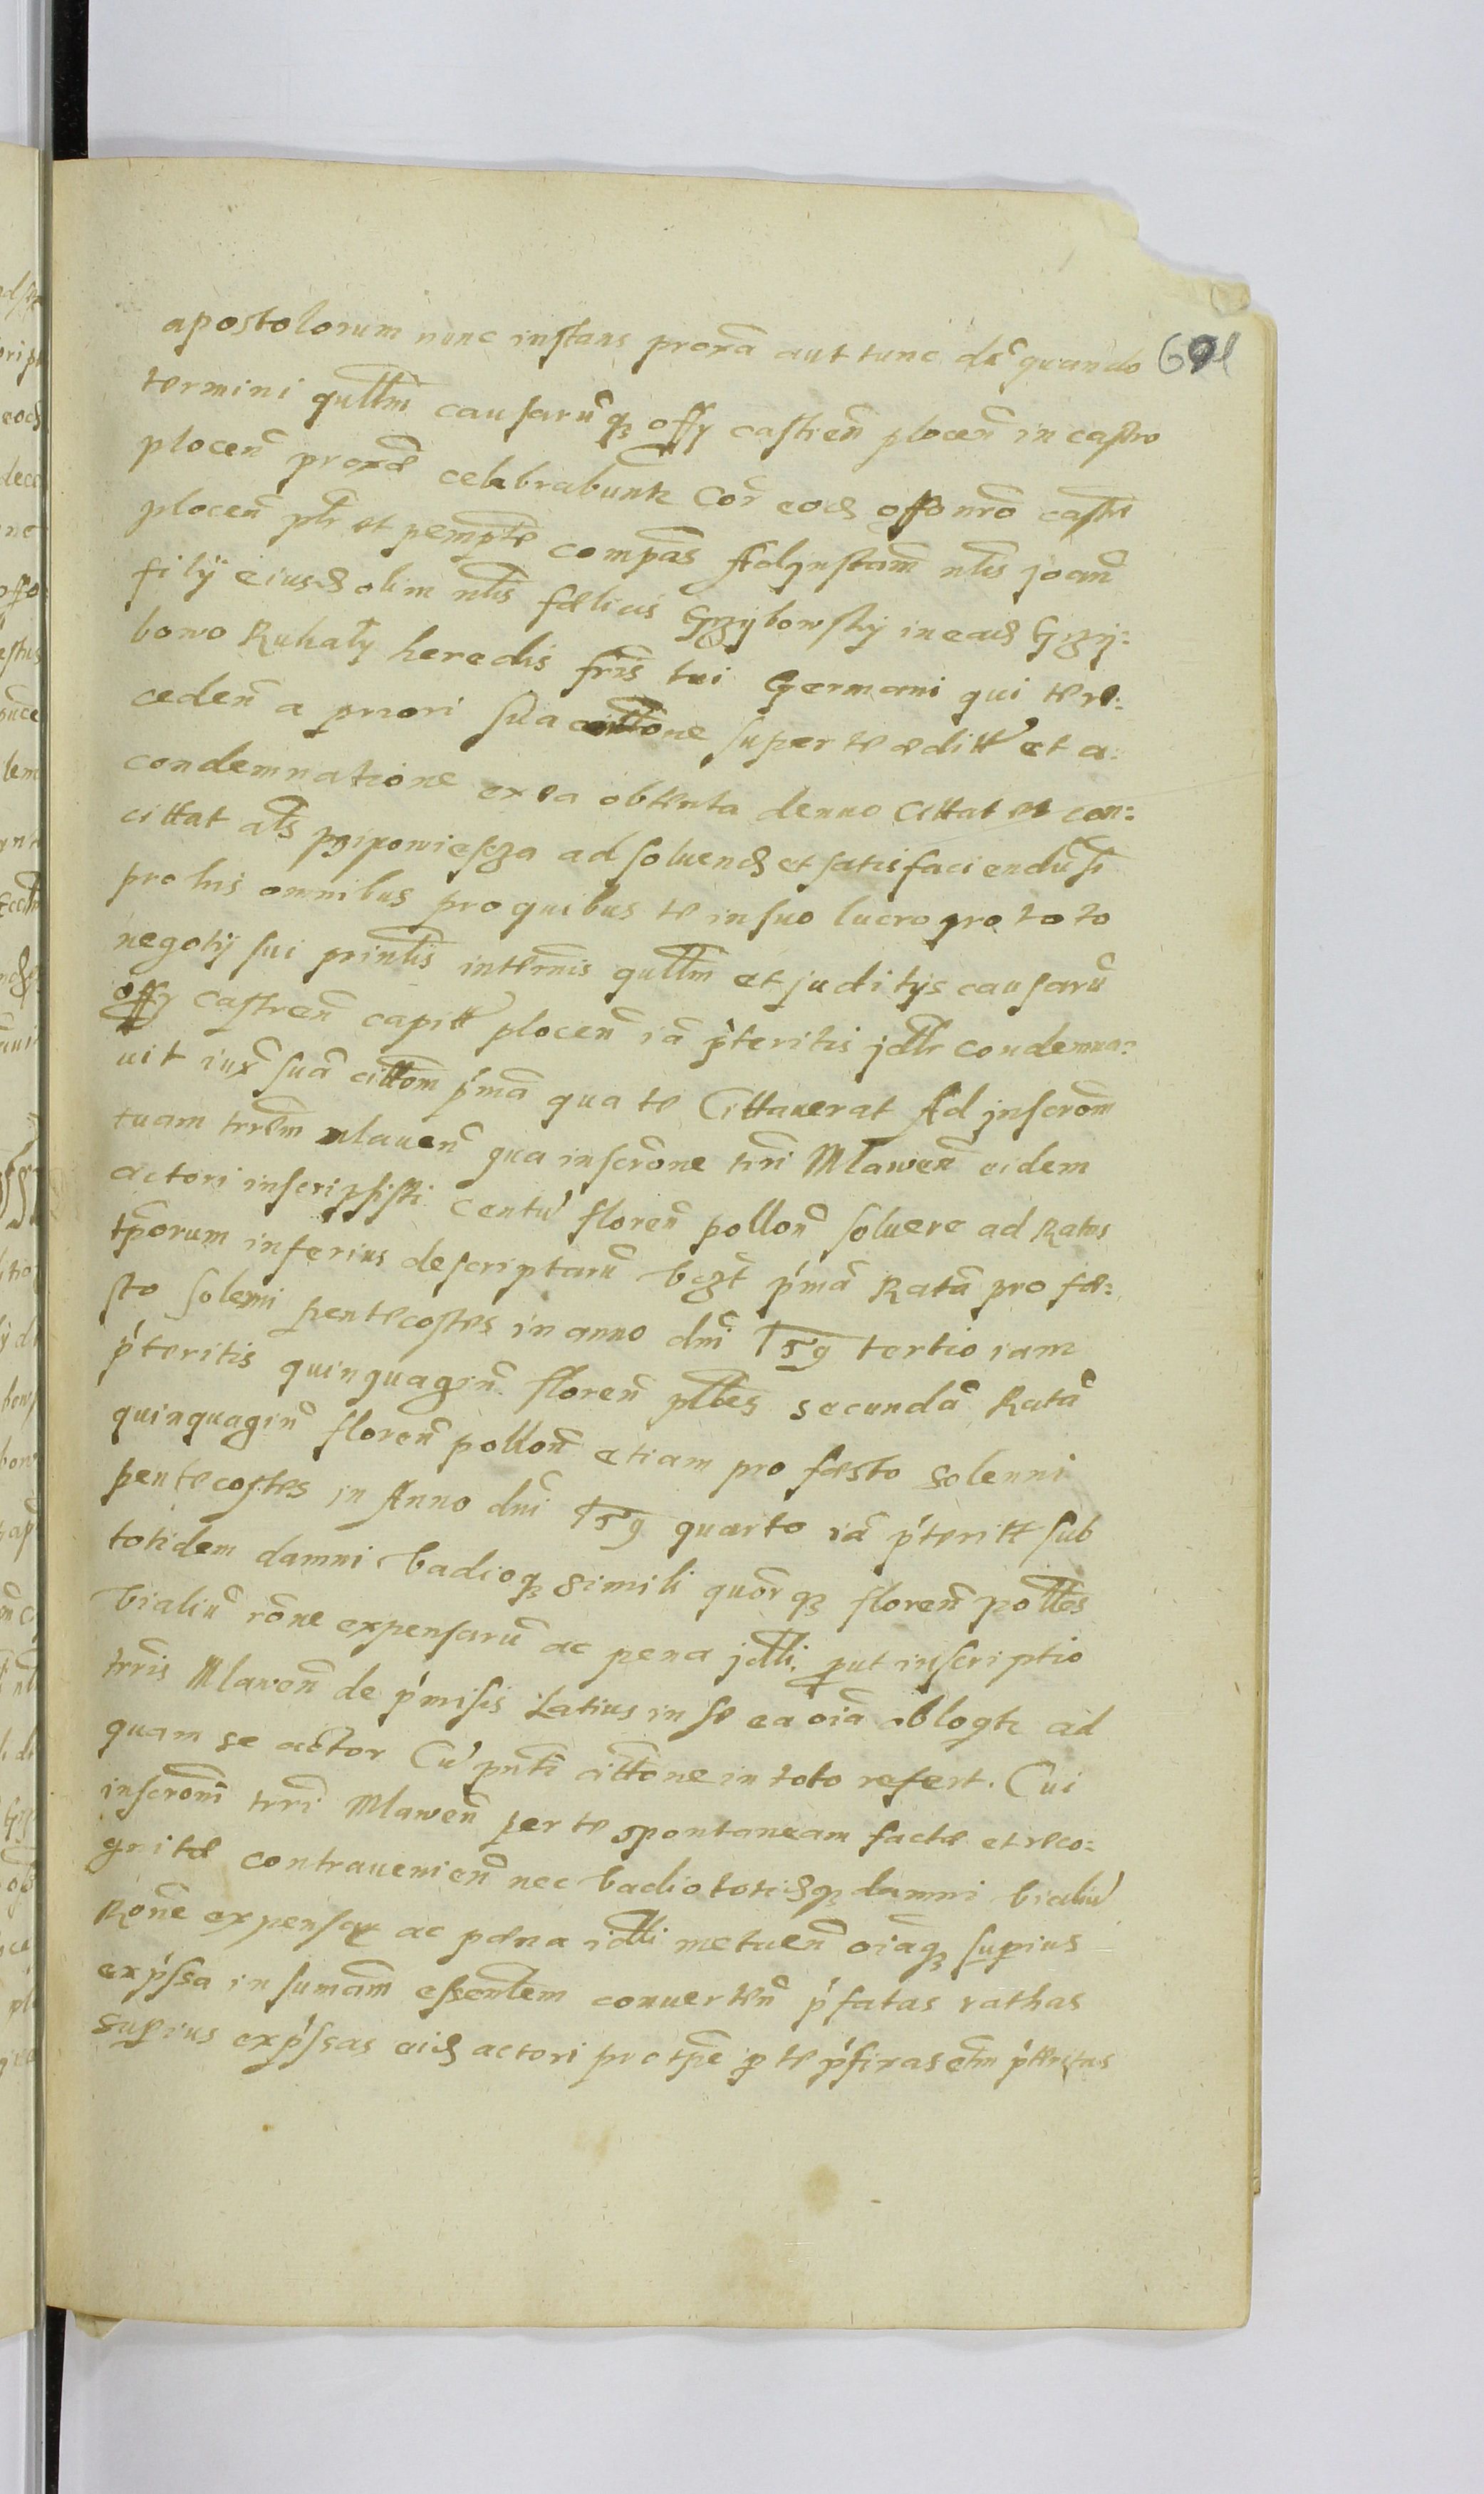 apostolorum nunc instans proxã aut tunc dẽ quando 691
termini qullm̃ causarũq offy castreñ ploceñ in castro
ploceñ proxẽ celebrabunt Cor̃ eod offo nr̃o castr
ploceñ plr et pempte compãs Ad Instam̃ nlis joañ
filÿ eiusd olim nlis fælicis Grzybowsky in ead Grzy:
bowo Rukały heredis fris tui Germani qui te re:
cedeñ a priori sua cittone super te æditt et a:
condemnatione ex ea obtenta denuo Cittat et con:
cittat als przipowiescza ad soluend et satisfaciendũ si
pro his omnibus pro quibus te in suo lucro pro toto
negotÿ sui prinlis in termis qullm̃ et juditÿs causarũ
offy castreñ capitt ploceñ iã p̃teritis jdlr condemna:
uit iux suã cittom̃ p̃mã qua te Cittauerat Ad inscrom̃
tuam trrem̃ mlaueñ qua inscrone trri Mlaweñ eidem
actori inscripsisti centũ floreñ polloñ soluere ad Ratas
tporum inferius descriptarũ vczt p̃mã Ratã pro fæ:
sto solemi pentecostes in anno dni 159 tertio iam
p̃teritis quinquagiñ floreñ pllles secundã Ratã
quinquagiñ floreñ polloñ etiam pro fæsto solenni
pentecostes in Anno dni 159 quarto iã p̃teritt sub
totidem damni vadioq simili quorq floreñ polles
vialiũ rone expensarũ ac pena jdlli, put inscriptio
trris Mlaweñ de p̃misis latius in se ea oia obloqtr ad
quam se actor Cũ pnti cittone in toto refert. Cui
inscroni trri Mlaweñ per te spontaneam factæ et reco:
gnitæ contrauenieñ nec vadio totidq damni vialiũ
Rone expensar ac pæna idlli metueñ oiaq supius
exp̃ssa in sumam̃ essentlem conuerteñ p̃fatas rathas
supius exp̃ssas eid actori pro tpe p te p̃fixas etm p̃teritas